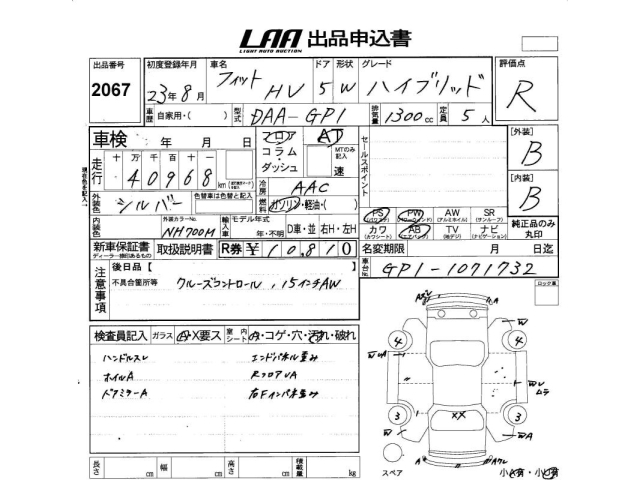 LAA 出品申込書
LIGHT AUTO AUCTION
出品番号 初度登録年月 車名 ドア 形状 グレード 評価点
2067 23年8月 フィット HV 5 W ハイブリッド R
車歴 自家用・( ) 型式 DAA-GP1 排気量 1300cc 定員 5人
車検 年 月 日 フロア AT セールスポイント [外装]
コラム MTのみ記入 B
走行 十万千百十 ・ダッシュ 速
40968 km 冷房 AAC [内装]
現在色を記入 色替車は色替と記入 燃料 ガソリン・軽油・( ) B
外装色 シルバー
外装カラーNo. 輸入車 モデル年式 PS PW AW SR
(パワステ) (パワーウィンドウ) (アルミホイル) (サンルーフ) 純正品のみ丸印
内装色 NH700M 年・不明 D車・並 右H・左H カワ AB TV ナビ
(カワシート) (エアバック) (地デジ) (ナビゲーション)
新車保証書 取扱説明書 R券 ¥10,810 名変期限 月 日迄
ディーラー捺印あるもの
車台No. GP1-1071732
注意事項 後日品[ ロック車
不具合箇所等 クルーズコントロール , 15インチAW
検査員記入 ガラス A・X要ス 室内シート A・コゲ・穴・汚れ・破れ
ハンドルスレ エンドパネル歪み
ホイルA RフロアUA
ドアミラーA 右Fインパネ歪み
A A
W
4 4
WUA
WU
ムラ
XX
3 3
W WA
A Aワレ
長さ cm 幅 cm 高さ cm 積載量 kg スペア